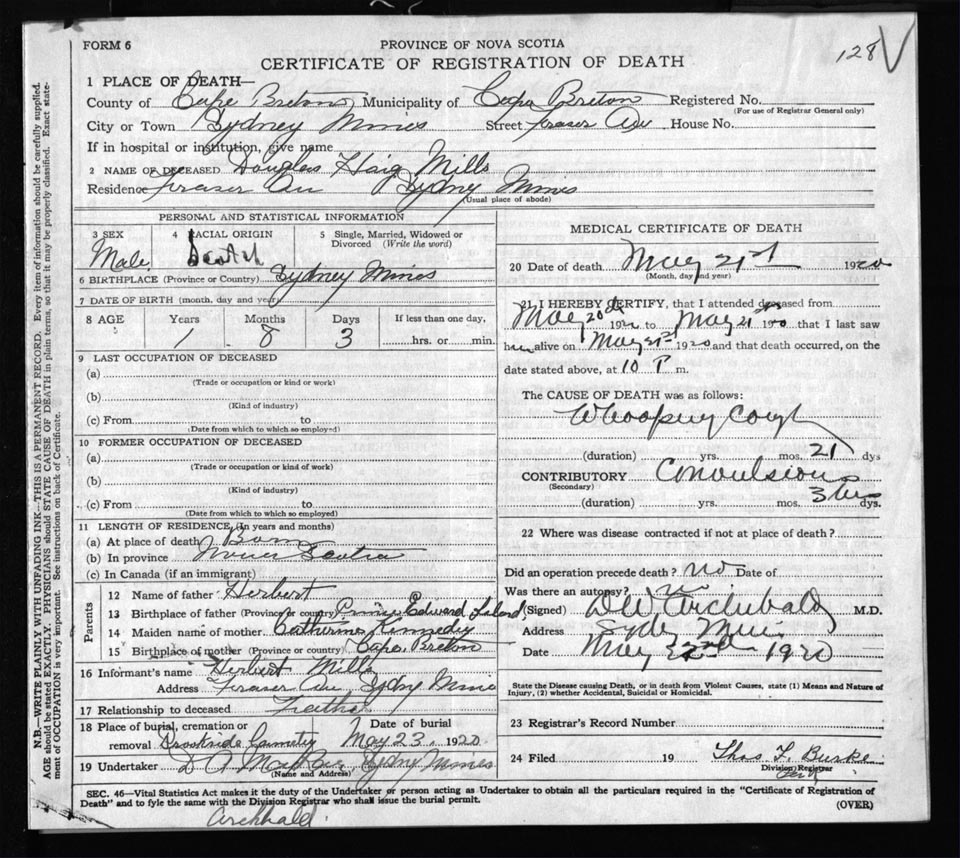 FORM 6
PROVINCE OF NOVA SCOTIA
128
CERTIFICATE OF REGISTRATION OF DEATH
1 PLACE OF DEATH—
County of Cape Breton Municipality of Cape Breton Registered No.
(For use of Registrar General only)
City or Town Sydney Mines Street Fraser Ave House No.
If in hospital or institution, give name
2 NAME OF DECEASED Douglas Haig Mills
Residence Fraser Av Sydny Mines
(Usual place of abode)
PERSONAL AND STATISTICAL INFORMATION
3 SEX Male
4 RACIAL ORIGIN Scotch
5 Single, Married, Widowed or Divorced (Write the word)
6 BIRTHPLACE (Province or Country) Sydny Mines
7 DATE OF BIRTH (month, day and year)
8 AGE Years Months Days If less than one day,
1 8 3 hrs. or min.
9 LAST OCCUPATION OF DECEASED
(a)
(Trade or occupation or kind or work)
(b)
(Kind of industry)
(c) From to
(Date from which to which so employed)
10 FORMER OCCUPATION OF DECEASED
(a)
(Trade or occupation or kind of work)
(b)
(Kind of industry)
(c) From to
(Date from which to which so employed)
11 LENGTH OF RESIDENCE (In years and months)
(a) At place of death Born
(b) In province Nova Scotia
(c) In Canada (if an immigrant)
Parents
12 Name of father Herbert
13 Birthplace of father (Province or country) Prince Edward Island
14 Maiden name of mother Catherine Kennedy
15 Birthplace of mother (Province or country) Cape Breton
16 Informant's name Herbert Mills
Address Fraser Av, Sydny Mines
17 Relationship to deceased Father
18 Place of burial, cremation or Date of burial
removal Brookside Cemetery May 23, 1920
19 Undertaker Sydny Mines
(Name and Address)
MEDICAL CERTIFICATE OF DEATH
20 Date of death May 21st 1920
(Month, day and year)
21 I HEREBY CERTIFY, that I attended deceased from
May 20th 1920 to May 21st 1920 that I last saw
him alive on May 21st 1920 and that death occurred, on the
date stated above, at 10 P m.
The CAUSE OF DEATH was as follows:
Whooping Cough
(duration) yrs. mos. 21 dys
CONTRIBUTORY Convulsions
(Secondary)
(duration) yrs. mos. 3 hrs dys.
22 Where was disease contracted if not at place of death?
Did an operation precede death? no Date of
Was there an autopsy? no
(Signed) DW Archibald M.D.
Address Sydny Mines
Date May 22nd 1920
State the Disease causing Death, or in death from Violent Causes, state (1) Means and Nature of
Injury, (2) whether Accidental, Suicidal or Homicidal.
23 Registrar's Record Number
24 Filed 19 Thos F. Burke
Division Registrar
SEC. 46—Vital Statistics Act makes it the duty of the Undertaker or person acting as Undertaker to obtain all the particulars required in the "Certificate of Registration of
Death" and to fyle the same with the Division Registrar who shall issue the burial permit.
(OVER)
Archibald
N.B.—WRITE PLAINLY WITH UNFADING INK—THIS IS A PERMANENT RECORD. Every item of information should be carefully supplied.
AGE should be stated EXACTLY. PHYSICIANS should STATE CAUSE OF DEATH in plain terms, so that it may be properly classified. Exact state-
ment of OCCUPATION is very important. See instructions on back of Certificate.